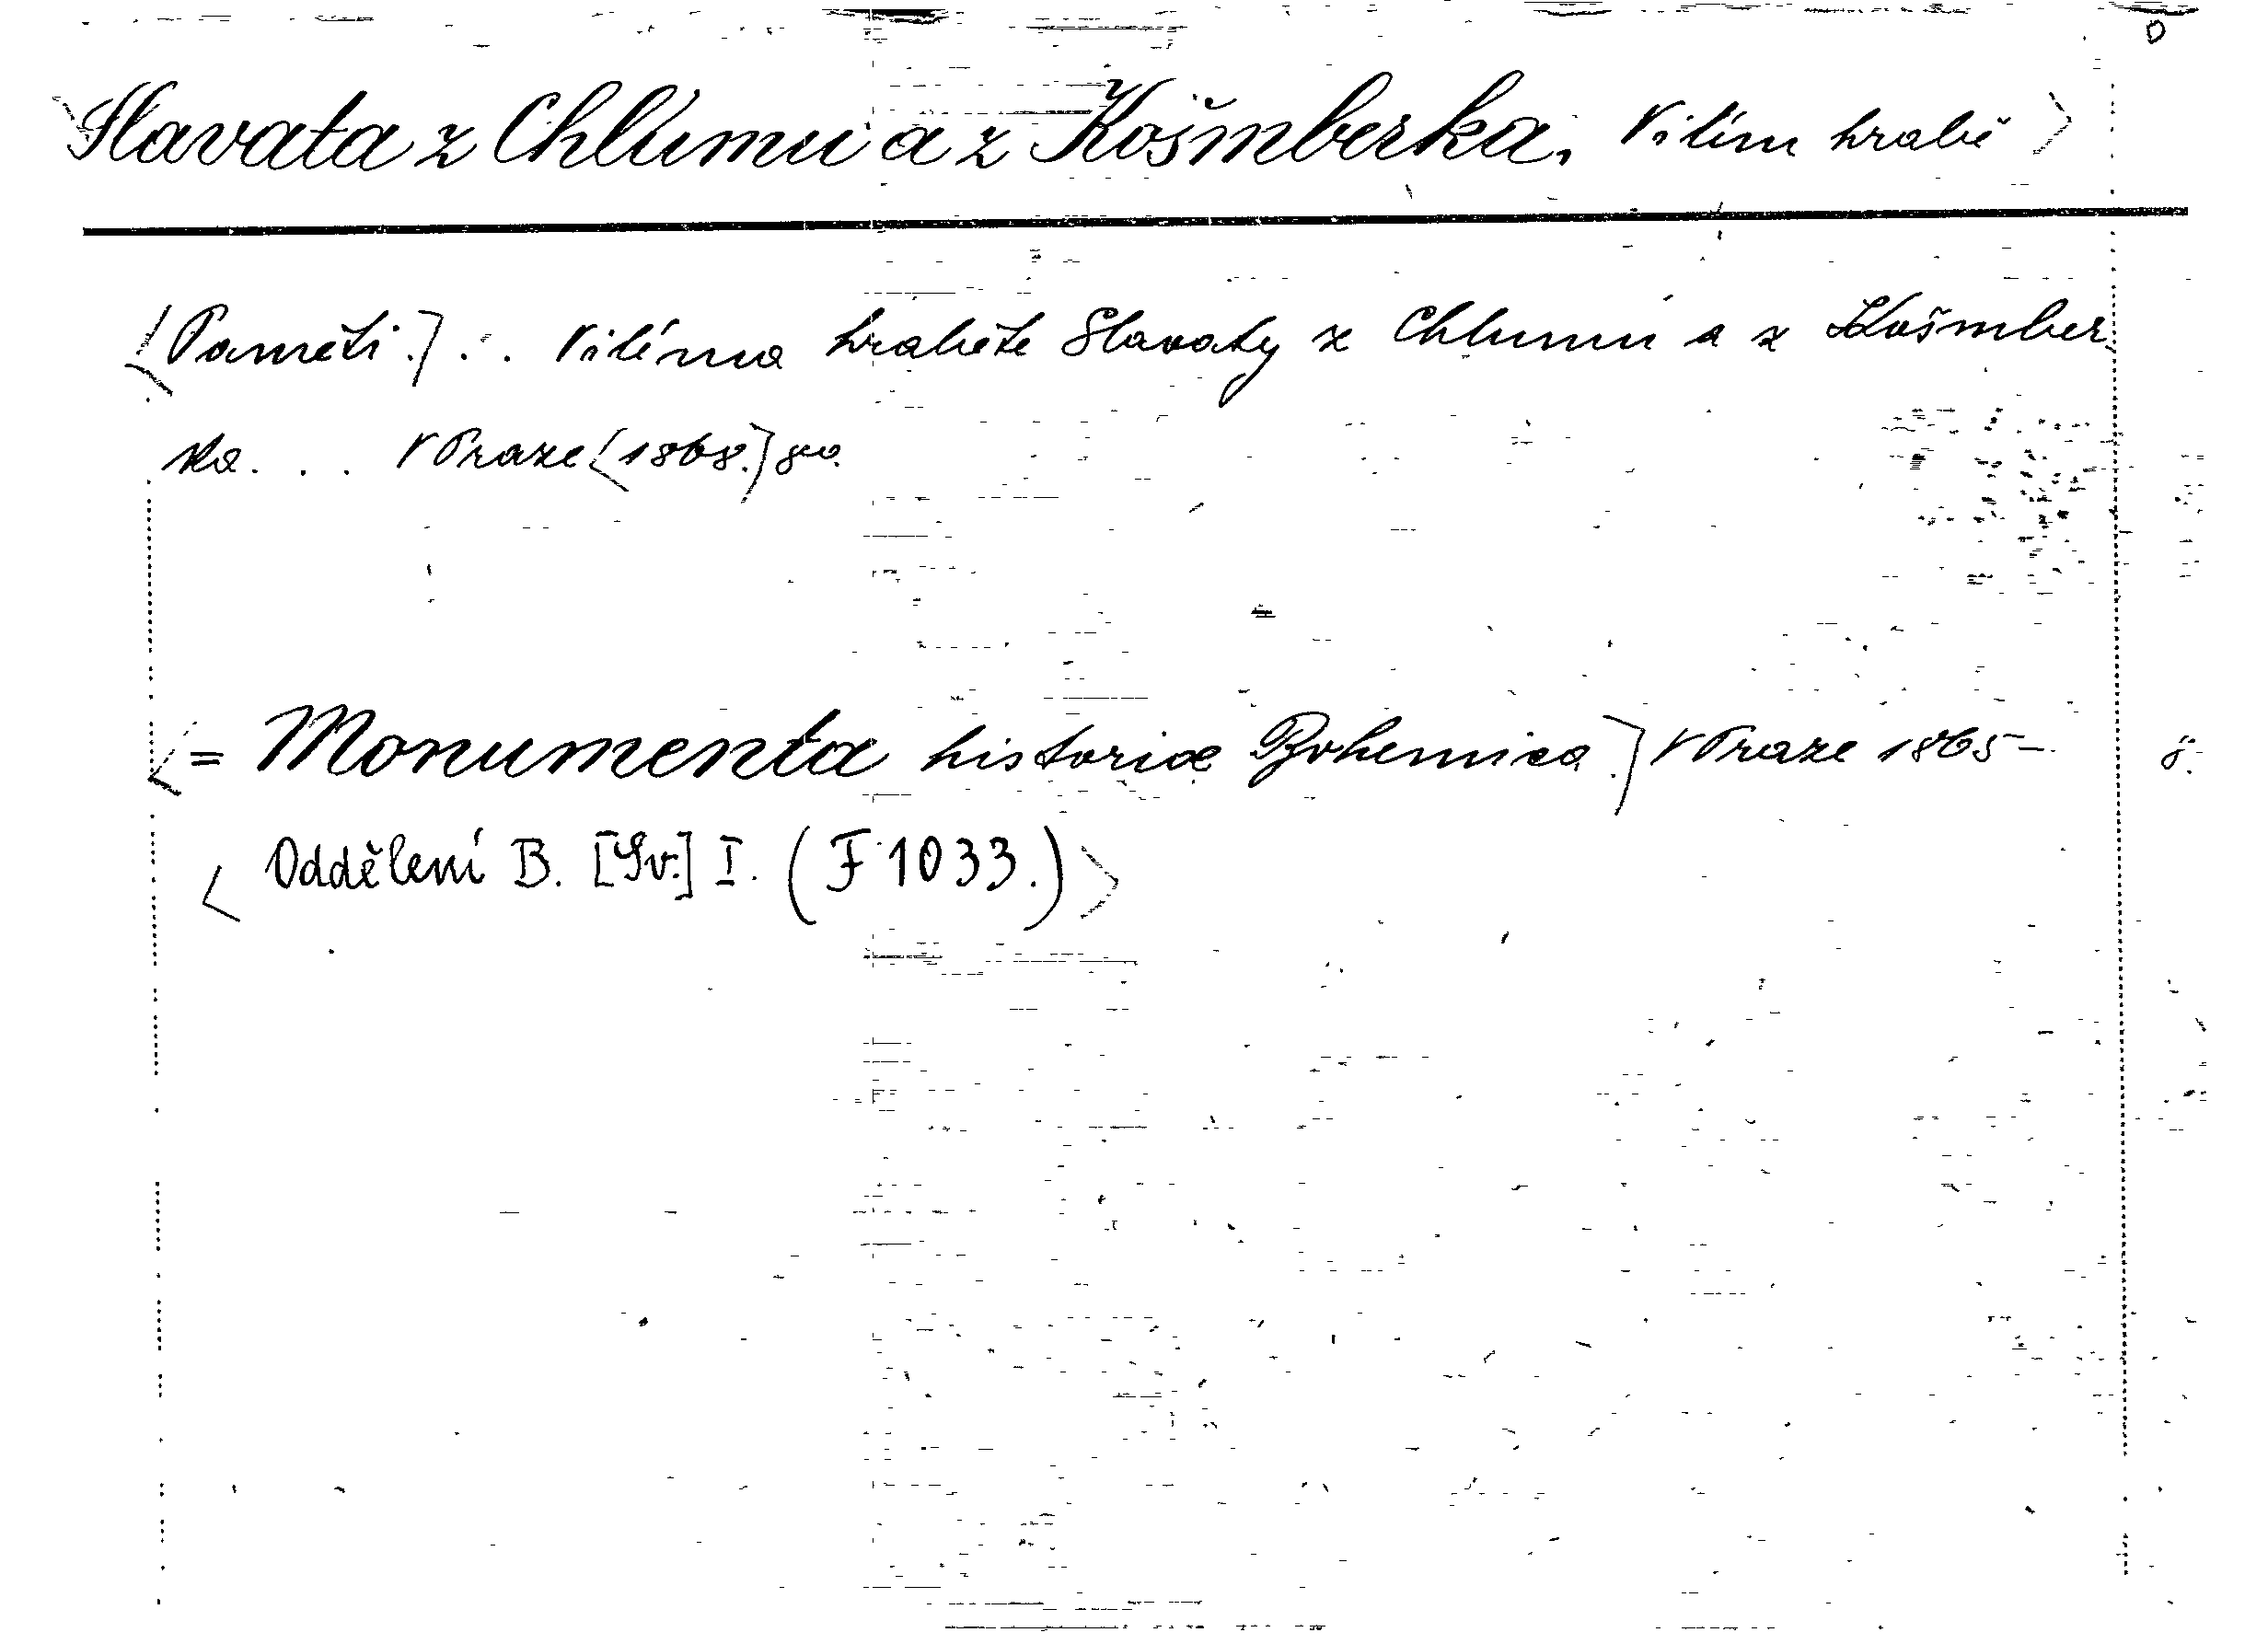 Slavata z Chlumu a z Košmberka, Vilím hrabě
[Paměti.] . . . Vilíma hraběte Slavaty z Chlumu a z Košmber
ka. . . V Praze [1868.] 8vo.
= Monumenta historiæ Bohemica.] V Praze 1865 – 8.
Oddělení B. [Sv.] I. (F 1033.)